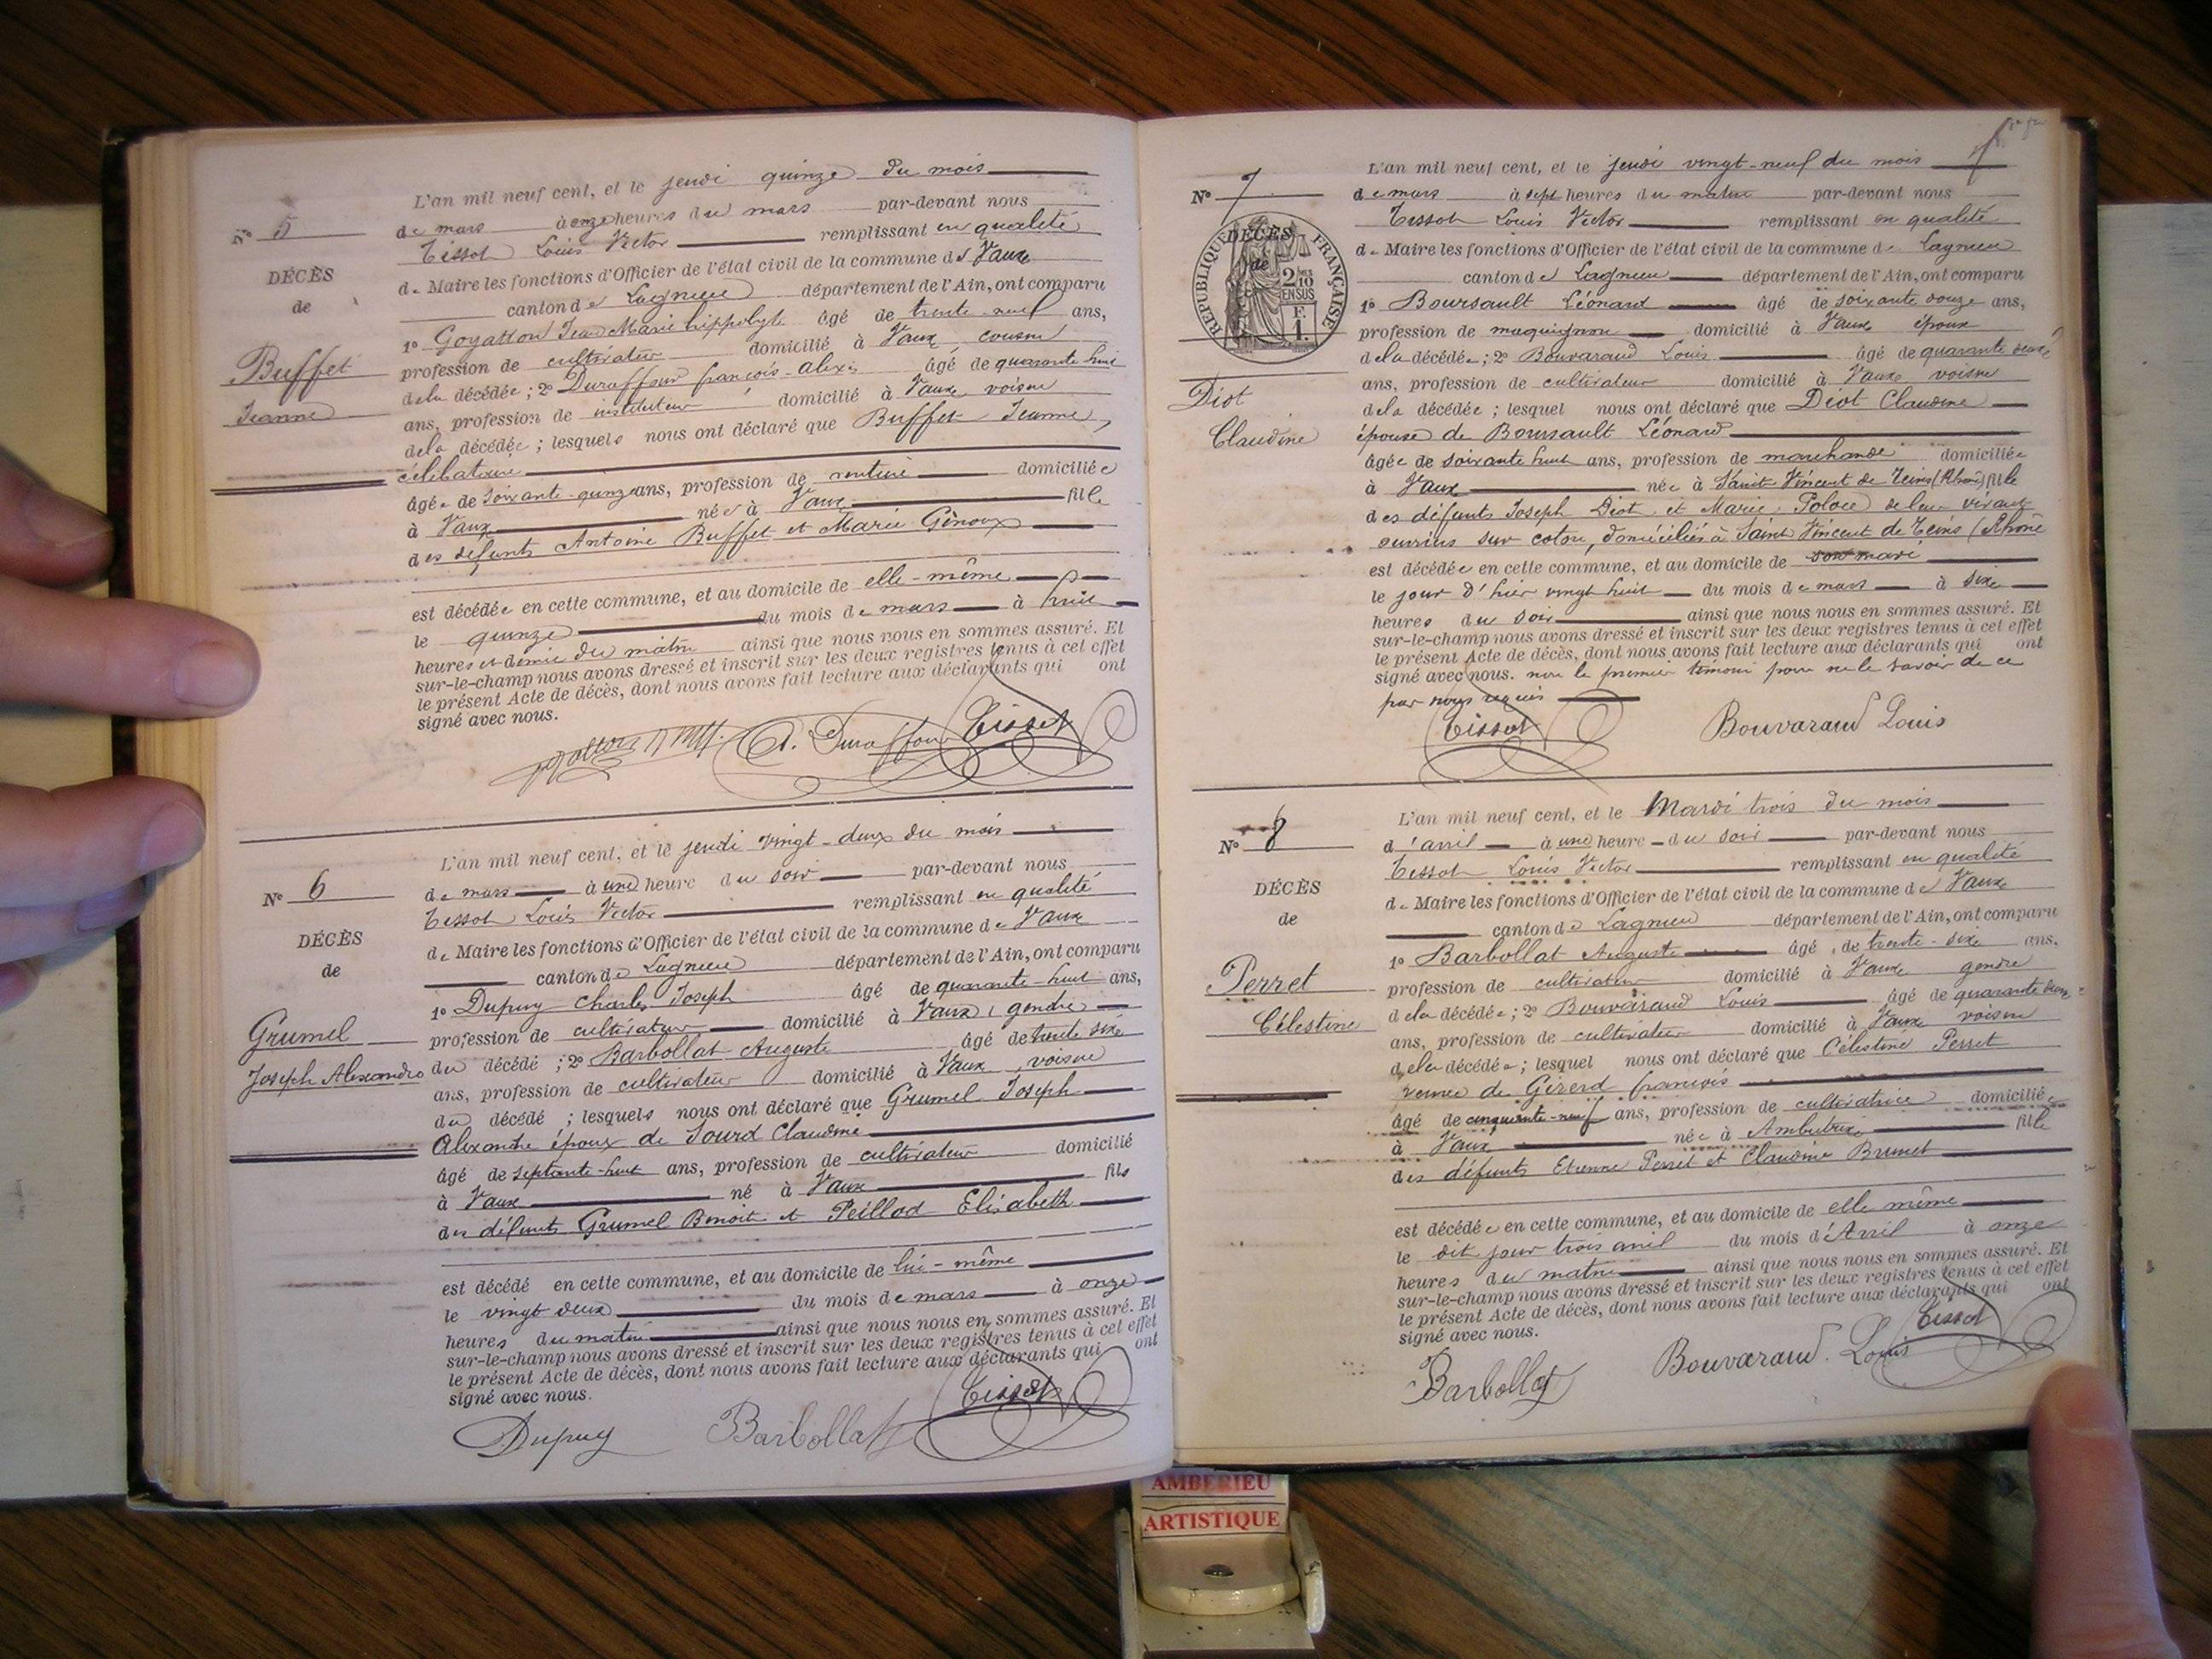 N° 5
DÉCÈS
de
Buffet
Jeanne
L'an mil neuf cent, et le jeudi quinze du mois
de mars à onze heures du mars par-devant nous
Tissot Louis Victor remplissant en qualité
de Maire les fonctions d'Officier de l'état civil de la commune de Vaux
canton de Lagnieu département de l'Ain, ont comparu
1° Goyatton Jean Marie hippolyte âgé de trente neuf ans,
profession de cultivateur domicilié à Vaux, cousin
de la décédée ; 2° Duraffour françois-alexis âgé de quarante huit
ans, profession de instituteur domicilié à Vaux voisin
de la décédée ; lesquels nous ont déclaré que Buffet Jeanne,
célibataire
âgée de soixante-quinze ans, profession de rentière domiciliée
à Vaux née à Vaux fille
des défunts Antoine Buffet et Marie Génoux
est décédée en cette commune, et au domicile de elle-même
le quinze du mois de mars à huit
heures et demie du matin ainsi que nous nous en sommes assuré. Et
sur-le-champ nous avons dressé et inscrit sur les deux registres tenus à cet effet
le présent Acte de décès, dont nous avons fait lecture aux déclarants qui ont
signé avec nous.
A. Duraffour Tissot
N° 6
DÉCÈS
de
Grumel
Joseph Alexandre
L'an mil neuf cent, et le jeudi vingt-deux du mois
de mars à une heure du soir par-devant nous
Tissot Louis Victor remplissant en qualité
de Maire les fonctions d'Officier de l'état civil de la commune de Vaux
canton de Lagnieu département de l'Ain, ont comparu
1° Dupuy Charles Joseph âgé de quarante-huit ans,
profession de cultivateur domicilié à Vaux, gendre
du décédé ; 2° Barbollat Auguste âgé de trente six
ans, profession de cultivateur domicilié à Vaux, voisin
du décédé ; lesquels nous ont déclaré que Grumel Joseph
Alexandre époux de Sourd Claudine
âgé de septante-huit ans, profession de cultivateur domicilié
à Vaux né à Vaux fils
des défunts Grumel Benoit et Peillod Elisabeth
est décédé en cette commune, et au domicile de lui-même
le vingt deux du mois de mars à onze
heures du matin ainsi que nous nous en sommes assuré. Et
sur-le-champ nous avons dressé et inscrit sur les deux registres tenus à cet effet
le présent Acte de décès, dont nous avons fait lecture aux déclarants qui ont
signé avec nous.
Dupuy Barbollat Tissot
N° 7
DÉCÈS
de
RÉPUBLIQUE FRANÇAISE
2/10 EN SUS
1 F.
Diot
Claudine
L'an mil neuf cent, et le jeudi vingt-neuf du mois
de mars à sept heures du matin par-devant nous
Tissot Louis Victor remplissant en qualité
de Maire les fonctions d'Officier de l'état civil de la commune de Lagnieu
canton de Lagnieu département de l'Ain, ont comparu
1° Boursault Léonard âgé de soixante douze ans,
profession de maquignon domicilié à Vaux époux
de la décédée ; 2° Bouvaraud Louis âgé de quarante deux
ans, profession de cultivateur domicilié à Vaux voisin
de la décédée ; lesquel nous ont déclaré que Diot Claudine
épouse de Boursault Léonard
âgée de soixante huit ans, profession de marchande domiciliée
à Vaux née à Saint Vincent de Reins (Rhône) fille
des défunts Joseph Diot et Marie Poloce de leur vivant
ouvriers sur coton, domiciliés à Saint Vincent de Reins (Rhône
est décédée en cette commune, et au domicile de son mari
le jour d'hier vingt huit du mois de mars à six
heures du soir ainsi que nous nous en sommes assuré. Et
sur-le-champ nous avons dressé et inscrit sur les deux registres tenus à cet effet
le présent Acte de décès, dont nous avons fait lecture aux déclarants qui ont
signé avec nous. non le premier témoin pour ne le savoir de ce
par nous requis
Tissot Bouvaraud Louis
N° 8
DÉCÈS
de
Perret
Célestine
L'an mil neuf cent, et le Mardi trois du mois
d'avril à une heure du soir par-devant nous
Tissot Louis Victor remplissant en qualité
de Maire les fonctions d'Officier de l'état civil de la commune de Vaux
canton de Lagnieu département de l'Ain, ont comparu
1° Barbollat Auguste âgé de trente-six ans.
profession de cultivateur domicilié à Vaux gendre
de la décédée ; 2° Bouvaraud Louis âgé de quarante deux
ans, profession de cultivateur domicilié à Vaux voisin
de la décédée ; lesquel nous ont déclaré que Célestine Perret
veuve de Girerd françois
âgé de cinquante-neuf ans, profession de cultivatrice domiciliée
à Vaux née à Ambutrix fille
des défunts Etienne Perret et Claudine Brunet
est décédée en cette commune, et au domicile de elle même
le dit jour trois avril du mois d'Avril à onze
heures du matin ainsi que nous nous en sommes assuré. Et
sur-le-champ nous avons dressé et inscrit sur les deux registres tenus à cet effet
le présent Acte de décès, dont nous avons fait lecture aux déclarants qui ont
signé avec nous.
Barbollat Bouvaraud Louis Tissot
AMBERIEU
ARTISTIQUE